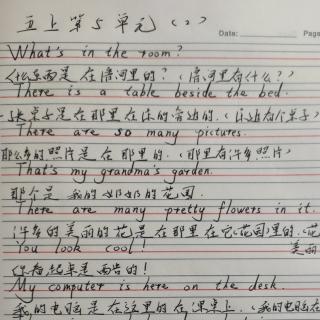 五上第5单元(2)
Date: Page
What's in the room?
什么东西是在房间里的?(房间里有什么?)
There is a table beside the bed.
一张桌子是在那里在床的旁边的.(床边有个桌子)
There are so many pictures.
那么多的照片是在那里的.(那里有许多照片)
That's my grandma's garden.
那个是我的奶奶的花园.
There are many pretty flowers in it.
许多的美丽的花是在那里在它花园里的.(花
You look cool! 美丽
你看起来是酷的!
My computer is here on the desk.
我的电脑是在这里的在课桌上.(我的电脑在